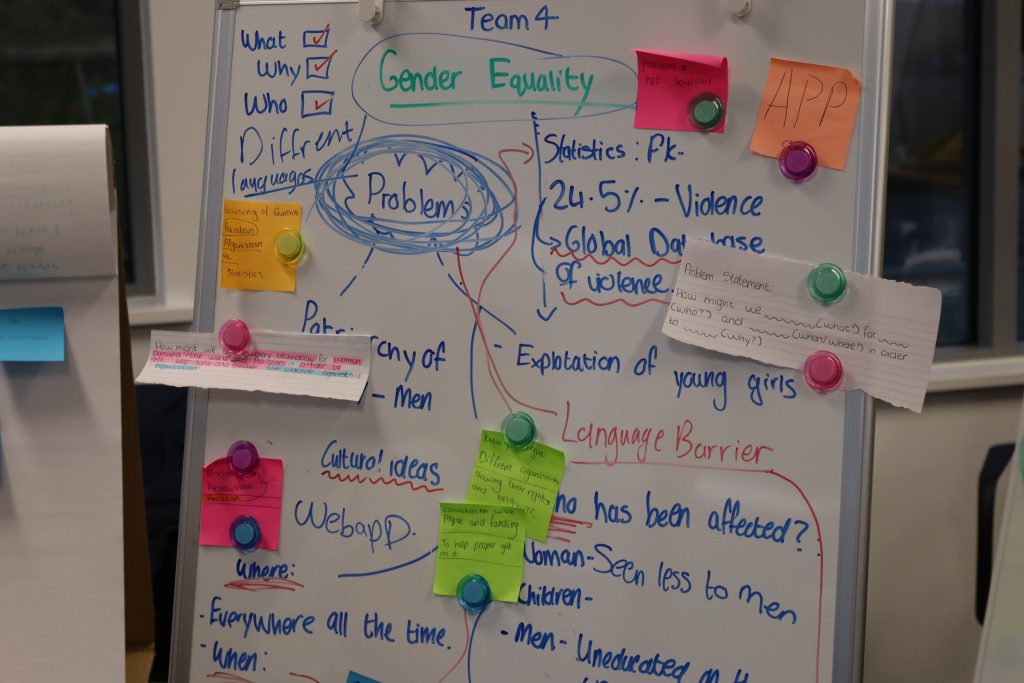 Team 4
What
Why
Who
Gender Equality
problems
not solutions
APP
Diffrent
languages
Problem
Statistics: Pk-
24.5% - Violence
Global Database
of violence.
Focusing of Countries
Pakistan
Afganistan
UK
STATISTICS
Problem Statement:
How might we (what?) for
(who?) and (when/where?) in order
to (why?)
How might we technology for women
around the world and Pakistan in order to
get help safe and quicker from violence against
of
- Men
- Explotation of
young girls
Language Barrier
Cultural ideas
Webapp.
Know
Different Organisations
showing their rights
and language
collaboration with
people and funding
To help people get
on it
Presentation
Where:
- Everywhere all the time.
- When:
has been affected?
Woman - Seen less to men
Children -
- Men - Uneducated on